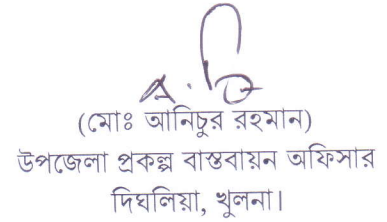 (মোঃ আনিচুর রহমান)
উপজেলা প্রকল্প বাস্তবায়ন অফিসার
দিঘলিয়া, খুলনা।